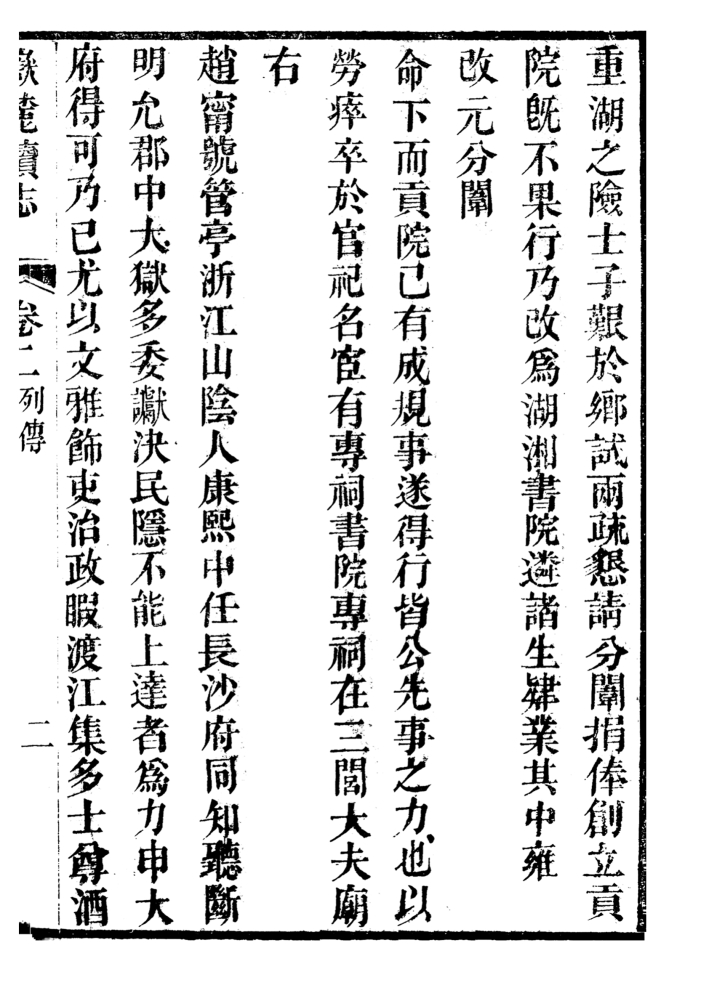 重湖之險士子艱於鄉試兩疏懇請分闈捐俸創立貢
院旣不果行乃改爲湖湘書院遴諸生肄業其中雍
改元分闈
命下而貢院已有成規事遂得行皆公先事之力也以
勞瘁卒於官祀名宦有專祠書院專祠在三閭大夫廟
右
趙甯號管亭浙江山陰人康熙中任長沙府同知聽斷
明允郡中大獄多委讞決民隱不能上達者爲力申大
府得可乃已尤以文雅飾吏治政暇渡江集多士尊酒
嶽麓續志 卷二列傳 二